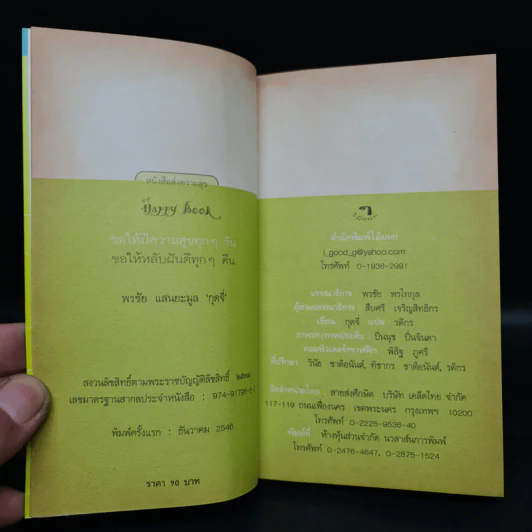 หนังสือส่งความสุข
Happy Book
ขอให้มีความสุขทุกๆ วัน
ขอให้หลับฝันดีทุกๆ คืน
พรชัย แสนยะมูล 'กุดจี่'
สงวนลิขสิทธิ์ตามพระราชบัญญัติลิขสิทธิ์ ๒๕๓๗
เลขมาตรฐานสากลประจำหนังสือ : 974-91796-
พิมพ์ครั้งแรก : ธันวาคม 2546
ราคา 90 บาท
สำนักพิมพ์ไม้ยมก
i_good_g@yahoo.com
โทรศัพท์ 0-1938-2991
บรรณาธิการ พรชัย
ผู้ช่วยบรรณาธิการ สืบศรี เจริญสิทธิกร
เขียน กุดจี่ รติกร
ภาพปก/ภาพประดับ ปิ่นนุช ปิ่นจินดา
คอมพิวเตอร์กราฟฟิค พิสิฐ ภูศรี
ที่ปรึกษา วินัย ชาติอนันต์, ทิชากร ชาติอนันต์, รติกร
จัดจำหน่ายโดย สายส่งศึกษิต บริษัท เคล็ดไทย จำกัด
117-119 ถนนเฟื่องนคร เขตพระนคร กรุงเทพฯ 10200
โทรศัพท์ 0-2225-9536-40
พิมพ์ที่ ห้างหุ้นส่วนจำกัด นวสาส์นการพิมพ์
โทรศัพท์ 0-2476-4647, 0-2875-1524